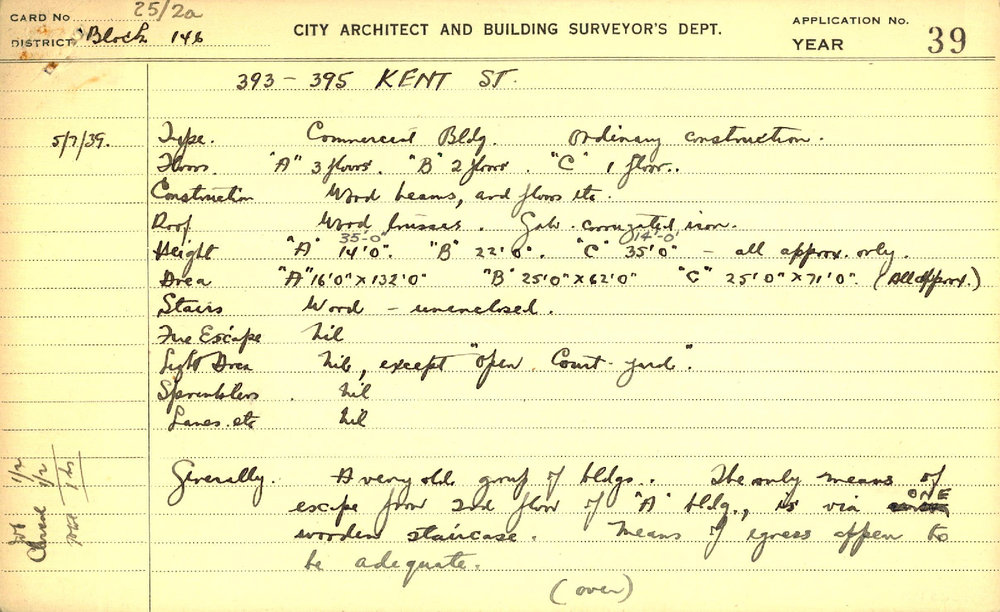 CARD No 25/2a
DISTRICT. Block 146
CITY ARCHITECT AND BUILDING SURVEYOR'S DEPT.
APPLICATION No.
YEAR 39
393 - 395 KENT ST.
5/7/39. Type. Commercial Bldg. Ordinary construction.
Floors. "A" 3 floors. "B" 2 floors. "C" 1 floor..
Construction Wood beams, and floors etc.
Roof Wood trusses. Galv. corrugated iron.
35'-0" 14'-0"
Height "A" 14'0". "B" 22'0". "C" 35'0" - all approx. only.
Area "A" 16'0" x 132'0" "B" 25'0" x 62'0" "C" 25'0" x 71'0". (All approx.)
Stairs Wood - unenclosed.
Fire Escape Nil
Light Area Nil, except "open Court-yard".
Sprinklers. Nil
Lanes. etc Nil
Generally. A very old group of bldgs.. The only means of
escape from 2nd floor of "A" bldg., is via ONE
wooden staircase. Means of egress appear to
be adequate.
(over)